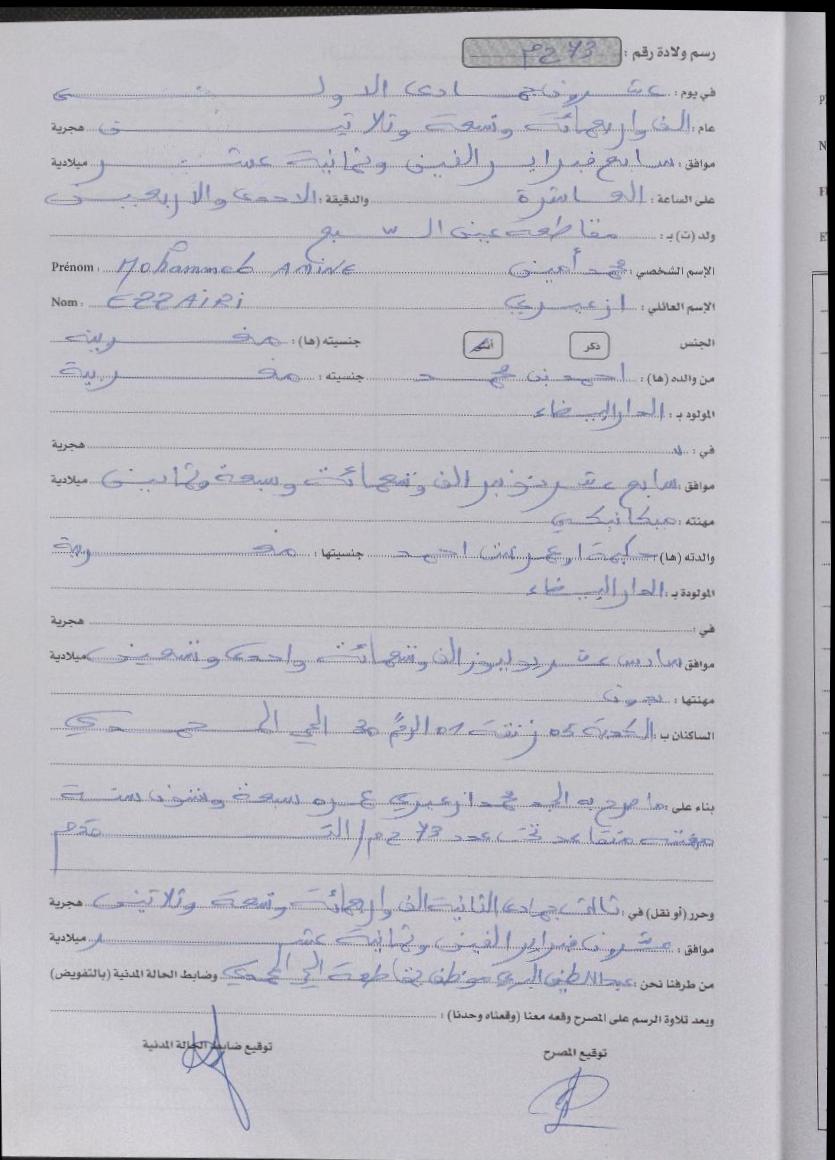 رسم ولادة رقم : 73 ح م
في يوم : عشرون جمادى الاولى
عام : الف واربعمائة وتسعة وثلاثين هجرية
موافق : سابع فبراير الفين وثمانية عشر ميلادية
على الساعة : العاشرة والدقيقة : الاحدى والاربعين
ولد (ت) بـ : مقاطعة عين السبع
الإسم الشخصي : محمد أمين Prénom : Mohammed AMINE
الإسم العائلي : ازعيري Nom : EZZAIRI
الجنس ذكر أنثى جنسيته (ها) : مغربية
من والده (ها) : احمد بن محمد جنسيته : مغربية
المولود بـ : الدار البيضاء
في : هجرية
موافق : سابع عشر نونبر الف وتسعمائة وسبعة وثمانين ميلادية
مهنته : ميكانيكي
والدته (ها) : حكيمة بنت احمد جنسيتها : مغربية
المولودة بـ : الدار البيضاء
في : هجرية
موافق : سادس عشر يوليوز الف وتسعمائة واحدى وتسعين ميلادية
مهنتها : بدون
الساكنان بـ : الكدية 05 زنقة 01 الرقم 30 الحي المحمدي
بناء على : ما صرح به الجد محمد ازعيري عمره سبعة وستون سنة
مهنته متقاعد تحت عدد 73 ح م / التقدم
وحرر (أو نقل) في : ثالث جمادى الثانية الف واربعمائة وتسعة وثلاثين هجرية
موافق : عشرون فبراير الفين وثمانية عشر ميلادية
من طرفنا نحن : عبد اللطيف موظف بمقاطعة الحي المحمدي وضابط الحالة المدنية (بالتفويض)
وبعد تلاوة الرسم على المصرح وقعه معنا (وقعناه وحدنا) :
توقيع المصرح توقيع ضابط الحالة المدنية